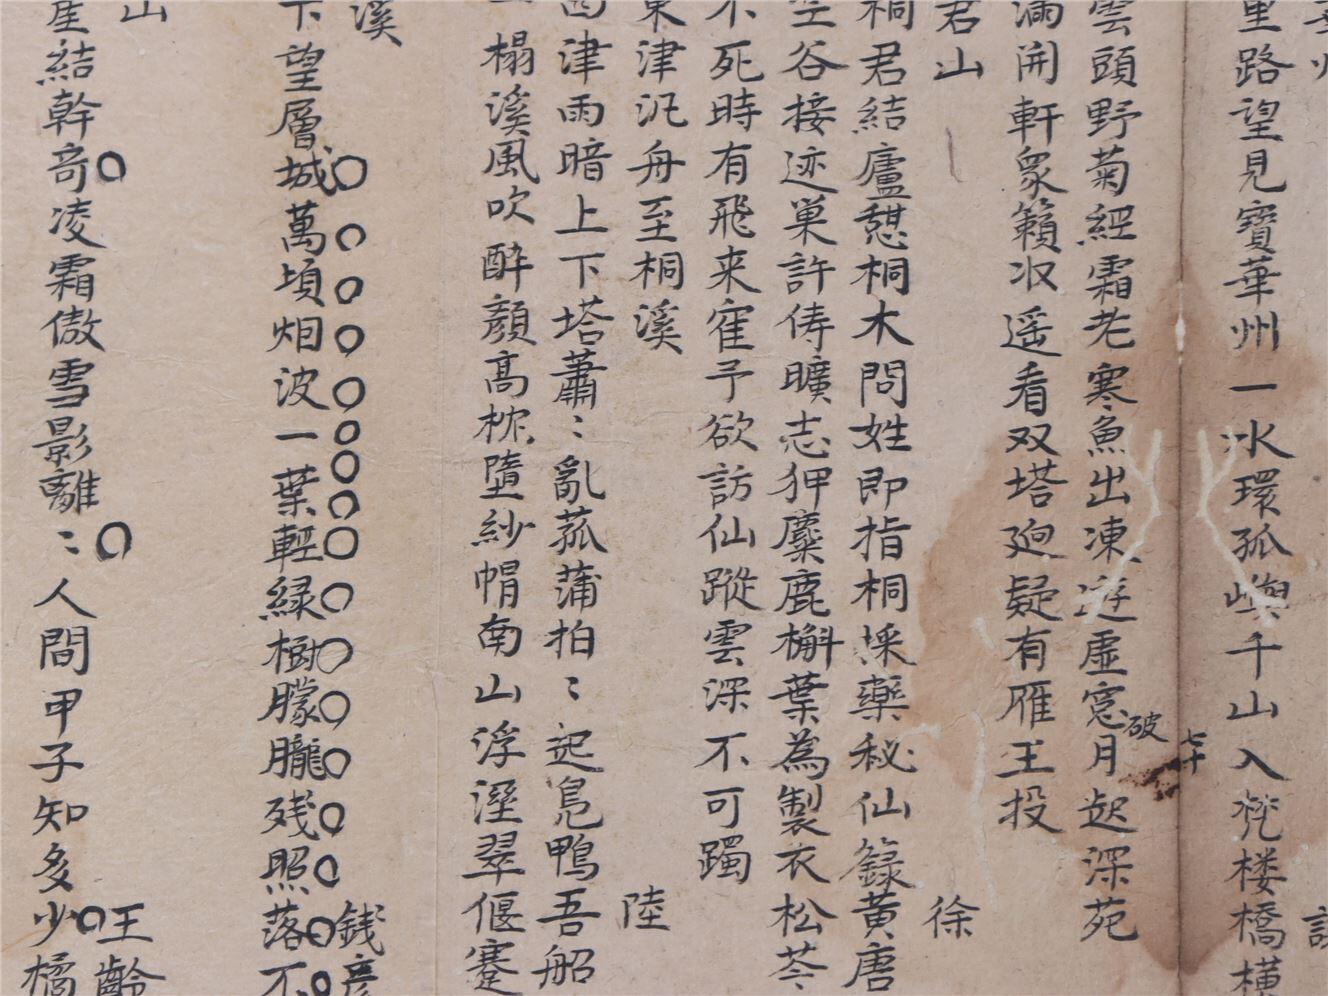 里路望見寶華州一水環孤嶼千山入梵楼橋横
雲頭野菊經霜老寒魚出凍遊虛窓月起深苑
破
七十
滿開軒衆籟収遥看双塔廻疑有雁王投
君山 徐
桐君結廬憇桐木問姓即指桐採藥秘仙籙黄唐
空谷接迹巢許俦曠志狎麋鹿槲葉為製衣松苓
不死時有飛来寉予欲訪仙蹤雲深不可躅
東津汎舟至桐溪 陸
西津雨暗上下塔蕭〻亂菰蒲拍〻起鳧鴨吾船
一榻溪風吹醉顏高枕墮紗帽南山浮溼翠偃蹇
溪 錢彦
下望層城萬頃烟波一葉輕綠樹朦朧残照落不
山 王齡
産結幹奇凌霜傲雪影離〻人間甲子知多少橘